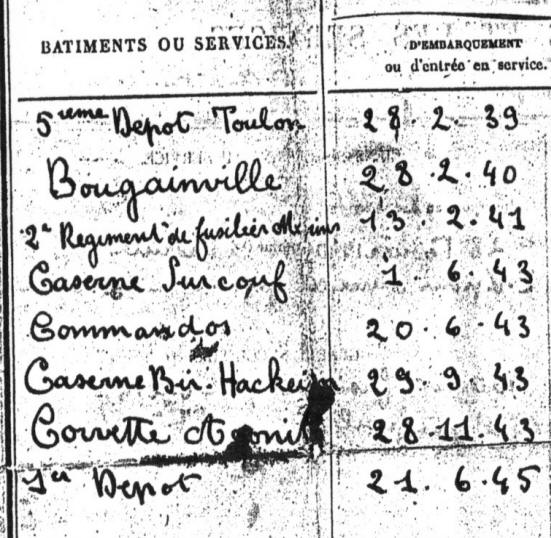 BATIMENTS OU SERVICES.
D'EMBARQUEMENT
ou d'entrée en service.
5ieme Depot Toulon 28.2.39
Bougainville 28.2.40
2e Regiment de fusilier Marins 13.2.41
Caserne Surcouf 1.6.43
Commandos 20.6.43
Caserne Bir-Hackeim 29.9.43
Corvette Aconit 28.11.43
1er Depot 21.6.45